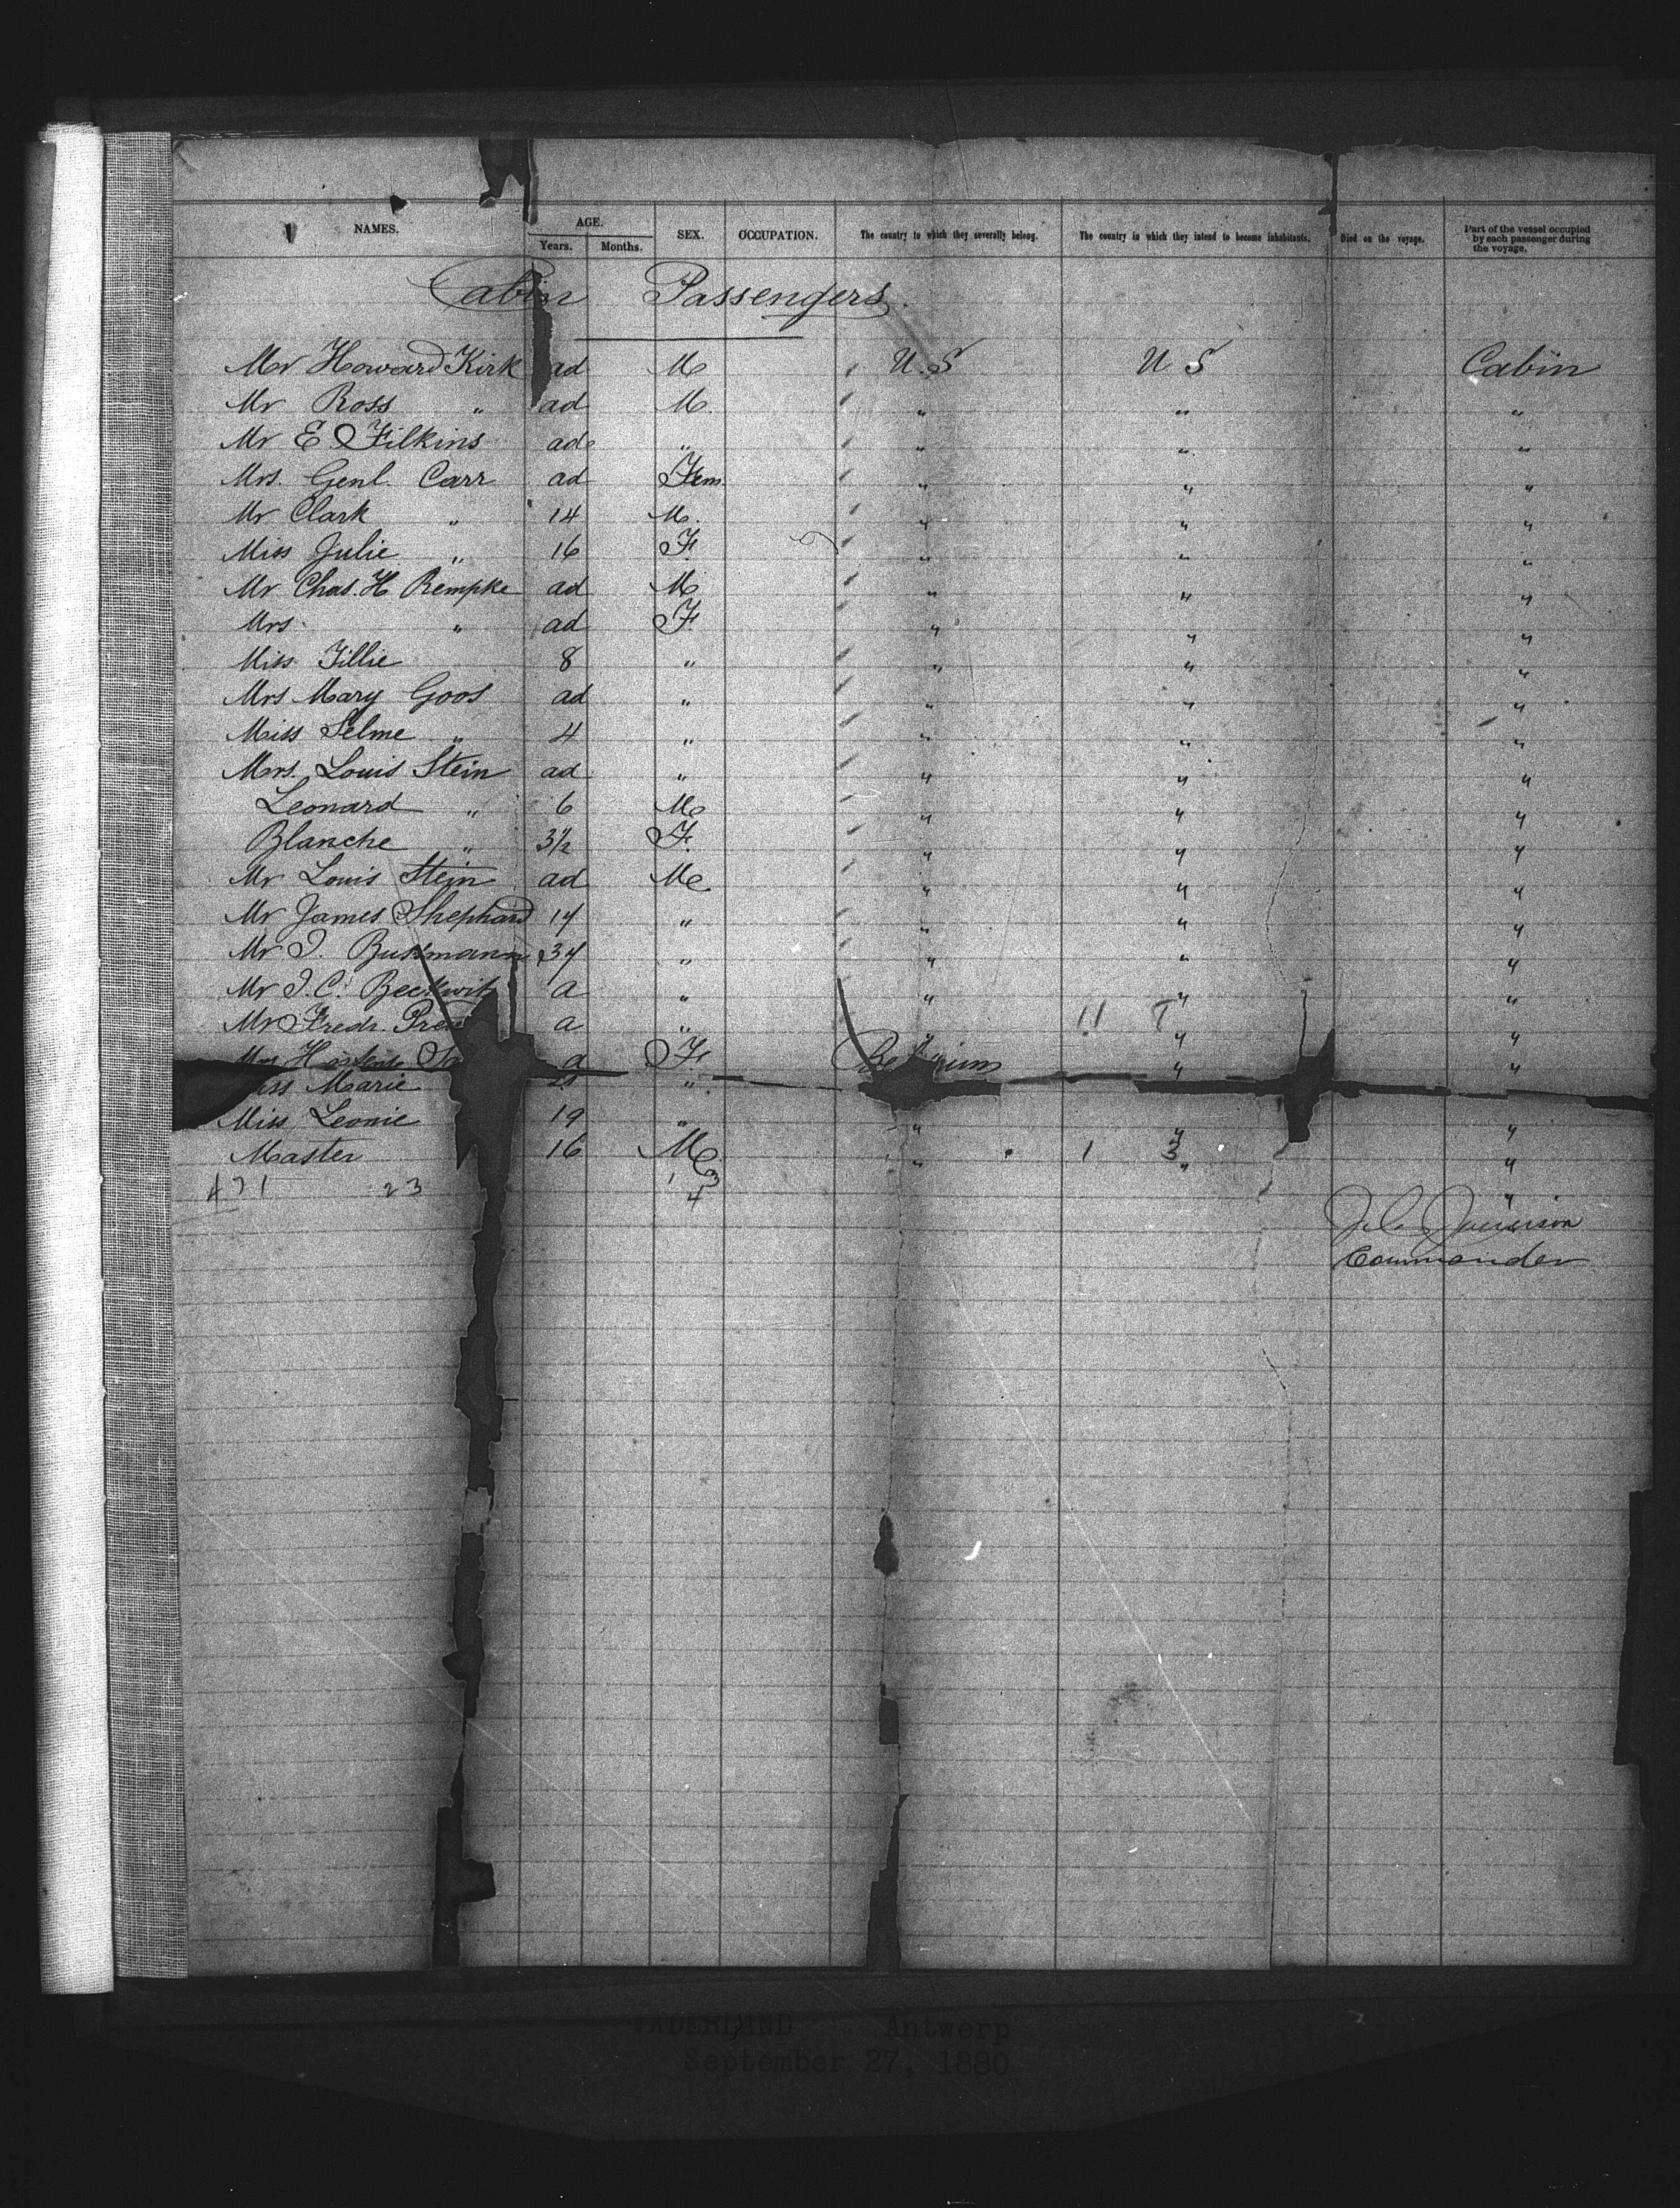 NAMES. AGE. Years. Months. SEX. OCCUPATION. The country to which they severally belong. The country in which they intend to become inhabitants. Died on the voyage. Part of the vessel occupied by each passenger during the voyage.
Cabin Passengers.
Mr Howard Kirk ad M U.S U S Cabin
Mr Ross " ad M. " " "
Mr E Filkins ad " " " "
Mrs. Genl. Carr ad Fem. " " "
Mr Clark " 14 M. " " "
Miss Julie " 16 F. " " "
Mr Chas. H Rempke ad M " " "
Mrs. " ad F. " " "
Miss Tillie 8 " " " "
Mrs Mary Goos ad " " " "
Miss Selme " 4 " " " "
Mrs. Louis Stein ad " " " "
Leonard " 6 M " " "
Blanche " 3½ F. " " "
Mr Louis Stein ad M " " "
Mr James Shephard 14 " " " "
Mr I. Bussmann 34 " " " "
Mr I. C. Beckwit a " " " "
Mr Fredr. a " " " "
Mrs Hortense a F. " "
Miss Marie "
Miss Leonie 19 " " " "
Master 16 M. " 1 3 " "
471 23 1 3 "
4
Commander
VADERLAND Antwerp
September 27, 1880